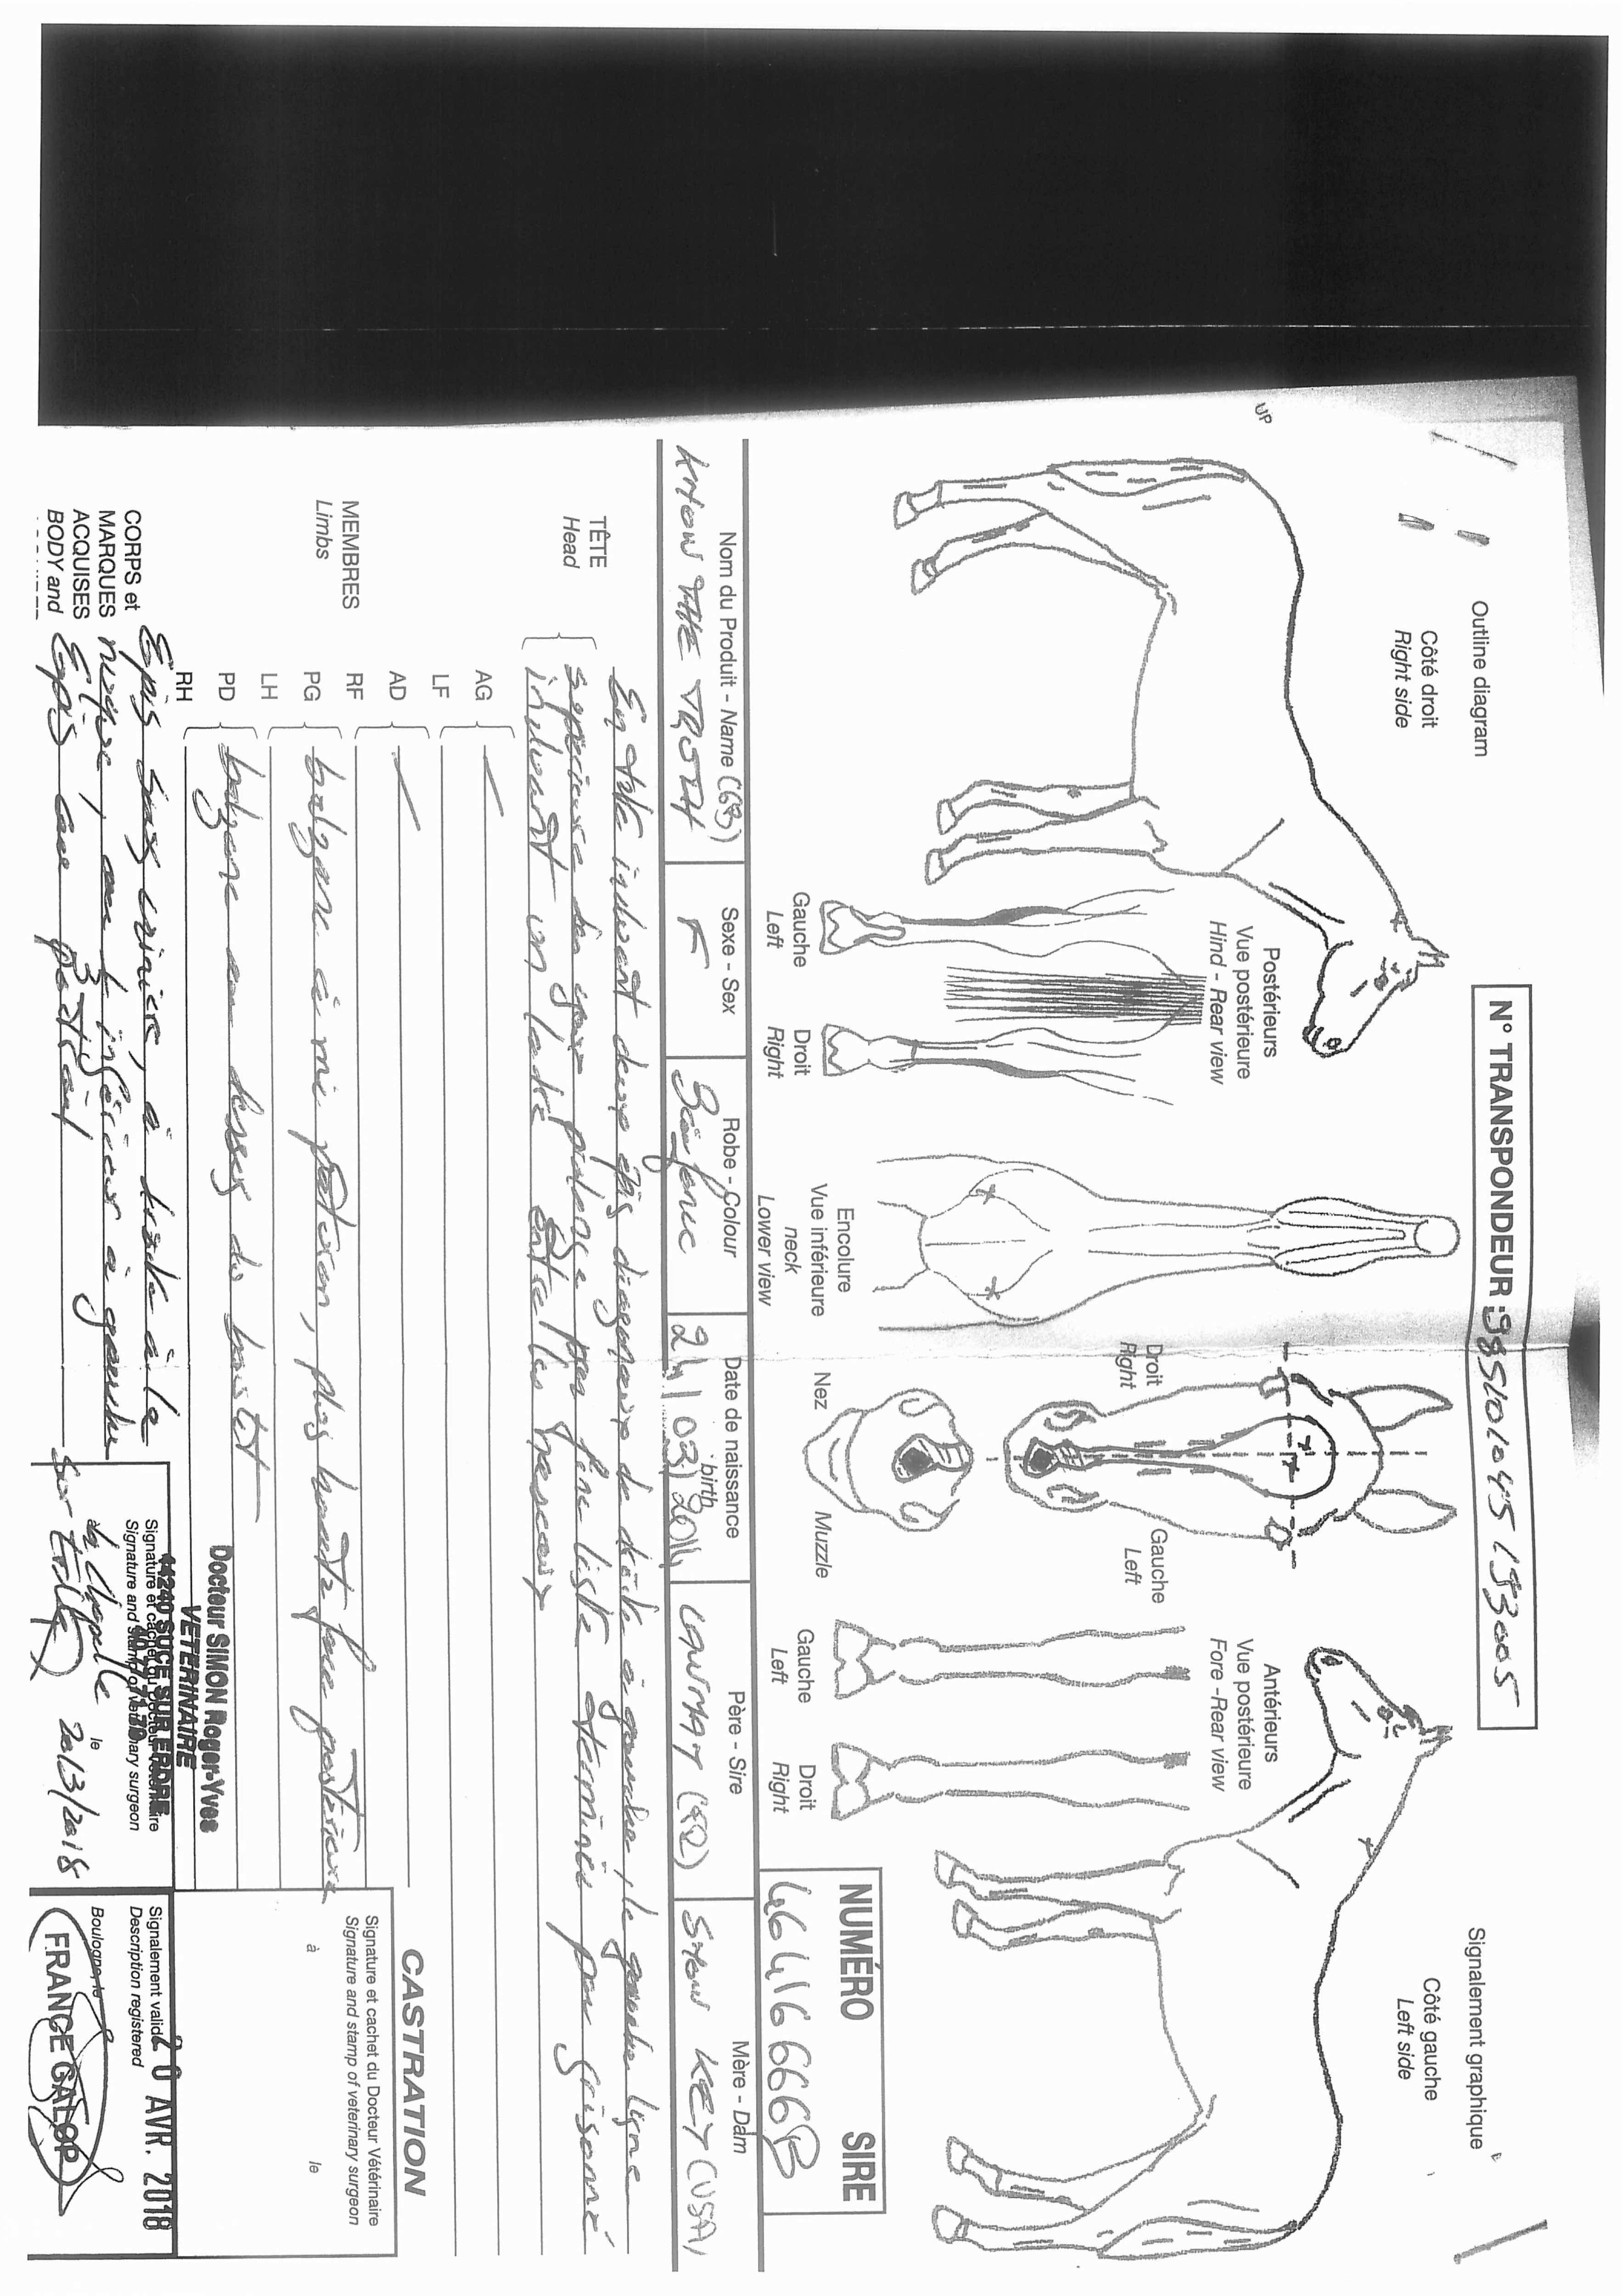 Outline diagram
Côté droit
Right side
UP
N° TRANSPONDEUR :985101045193005
Signalement graphique
Côté gauche
Left side
Postérieurs
Vue postérieure
Hind - Rear view
Gauche
Left
Droit
Right
Encolure
Vue inférieure
neck
Lower view
Droit
Right
Gauche
Left
Nez
Muzzle
Antérieurs
Vue postérieure
Fore -Rear view
Gauche
Left
Droit
Right
NUMÉRO SIRE
Nom du Produit - Name (GB)
KNOW THE TRUTH
Sexe - Sex
F
Robe - Colour
Date de naissance
birth
Père - Sire
LAWMAN (FR)
Mère - Dam
SHOW KEY (USA)
TÊTE
Head
En tête incluant deux épis diagonaux de droite à gauche, le gauche ligne
supérieure des yeux prolongé par fine liste terminée par grisonné
incluant un ladre entre les naseaux
MEMBRES
Limbs
AG
LF
AD
RF
PG
balzane à mi paturon, plus haute face postérieure
LH
PD
balzane au dessus du boulet
RH
CORPS et
MARQUES
ACQUISES
BODY and
Epis sous crinière, à droite à la
nuque, au 1/3 inférieur à gauche
Epis au poitrail
Docteur SIMON Roger-Yves
VETERINAIRE
44240 SUCE SUR ERDRE
Signature et cachet du Docteur Vétérinaire
Signature and stamp of veterinary surgeon
à la Chapelle le 20/3/2018
sur Erdre
CASTRATION
Signature et cachet du Docteur Vétérinaire
Signature and stamp of veterinary surgeon
à le
Signalement validé
Description registered
20 AVR. 2018
Boulogne, le
FRANCE GALOP